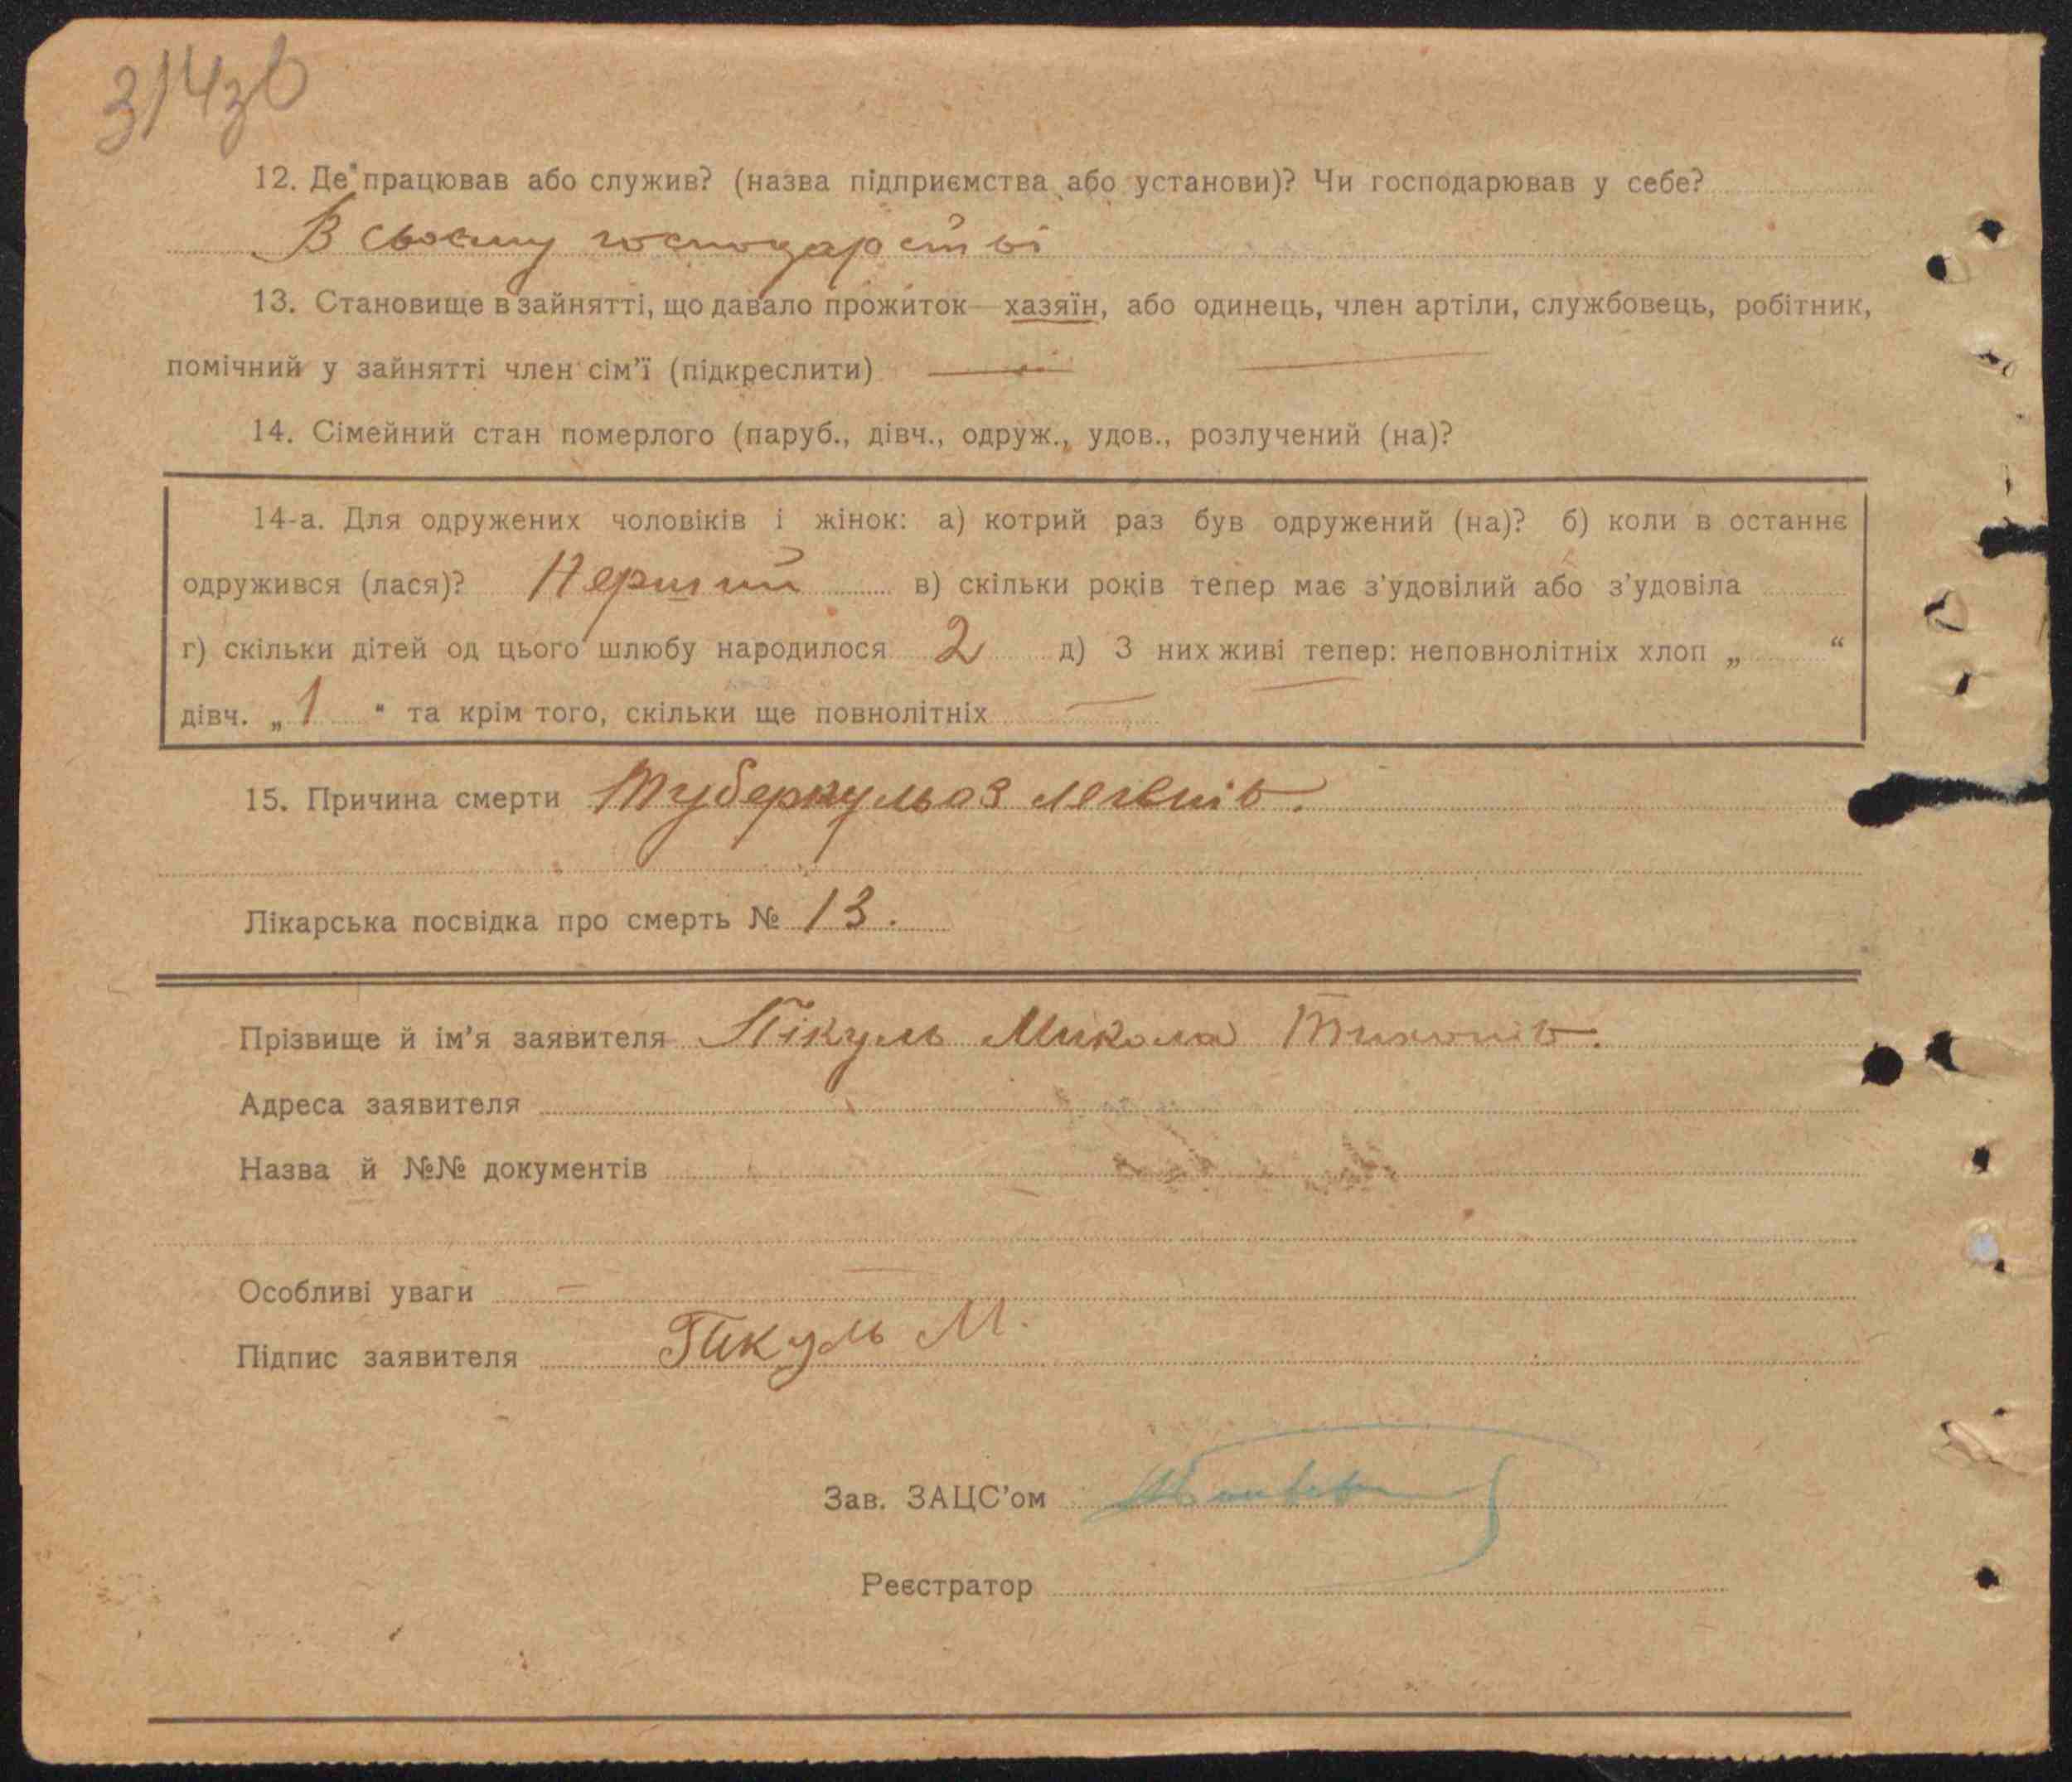 314зв
12. Де працював або служив? (назва підприємства або установи)? Чи господарював у себе?
В своєму господарстві
13. Становище в зайнятті, що давало прожиток—хазяїн, або одинець, член артіли, службовець, робітник,
помічний у зайнятті член сім'ї (підкреслити) —
14. Сімейний стан померлого (паруб., дівч., одруж., удов., розлучений (на)?
14-а. Для одружених чоловіків і жінок: а) котрий раз був одружений (на)? б) коли в останнє
одружився (лася)? Перший в) скільки років тепер має з'удовілий або з'удовіла
г) скільки дітей од цього шлюбу народилося 2 д) З них живі тепер: неповнолітніх хлоп „ — “
дівч. „ 1 “ та крім того, скільки ще повнолітніх —
15. Причина смерти Туберкульоз легенів.
Лікарська посвідка про смерть № 13.
Прізвище й ім'я заявителя Пікуль Микола Тихонів.
Адреса заявителя
Назва й №№ документів
Особливі уваги —
Підпис заявителя Пікуль М.
Зав. ЗАЦС'ом
Реєстратор